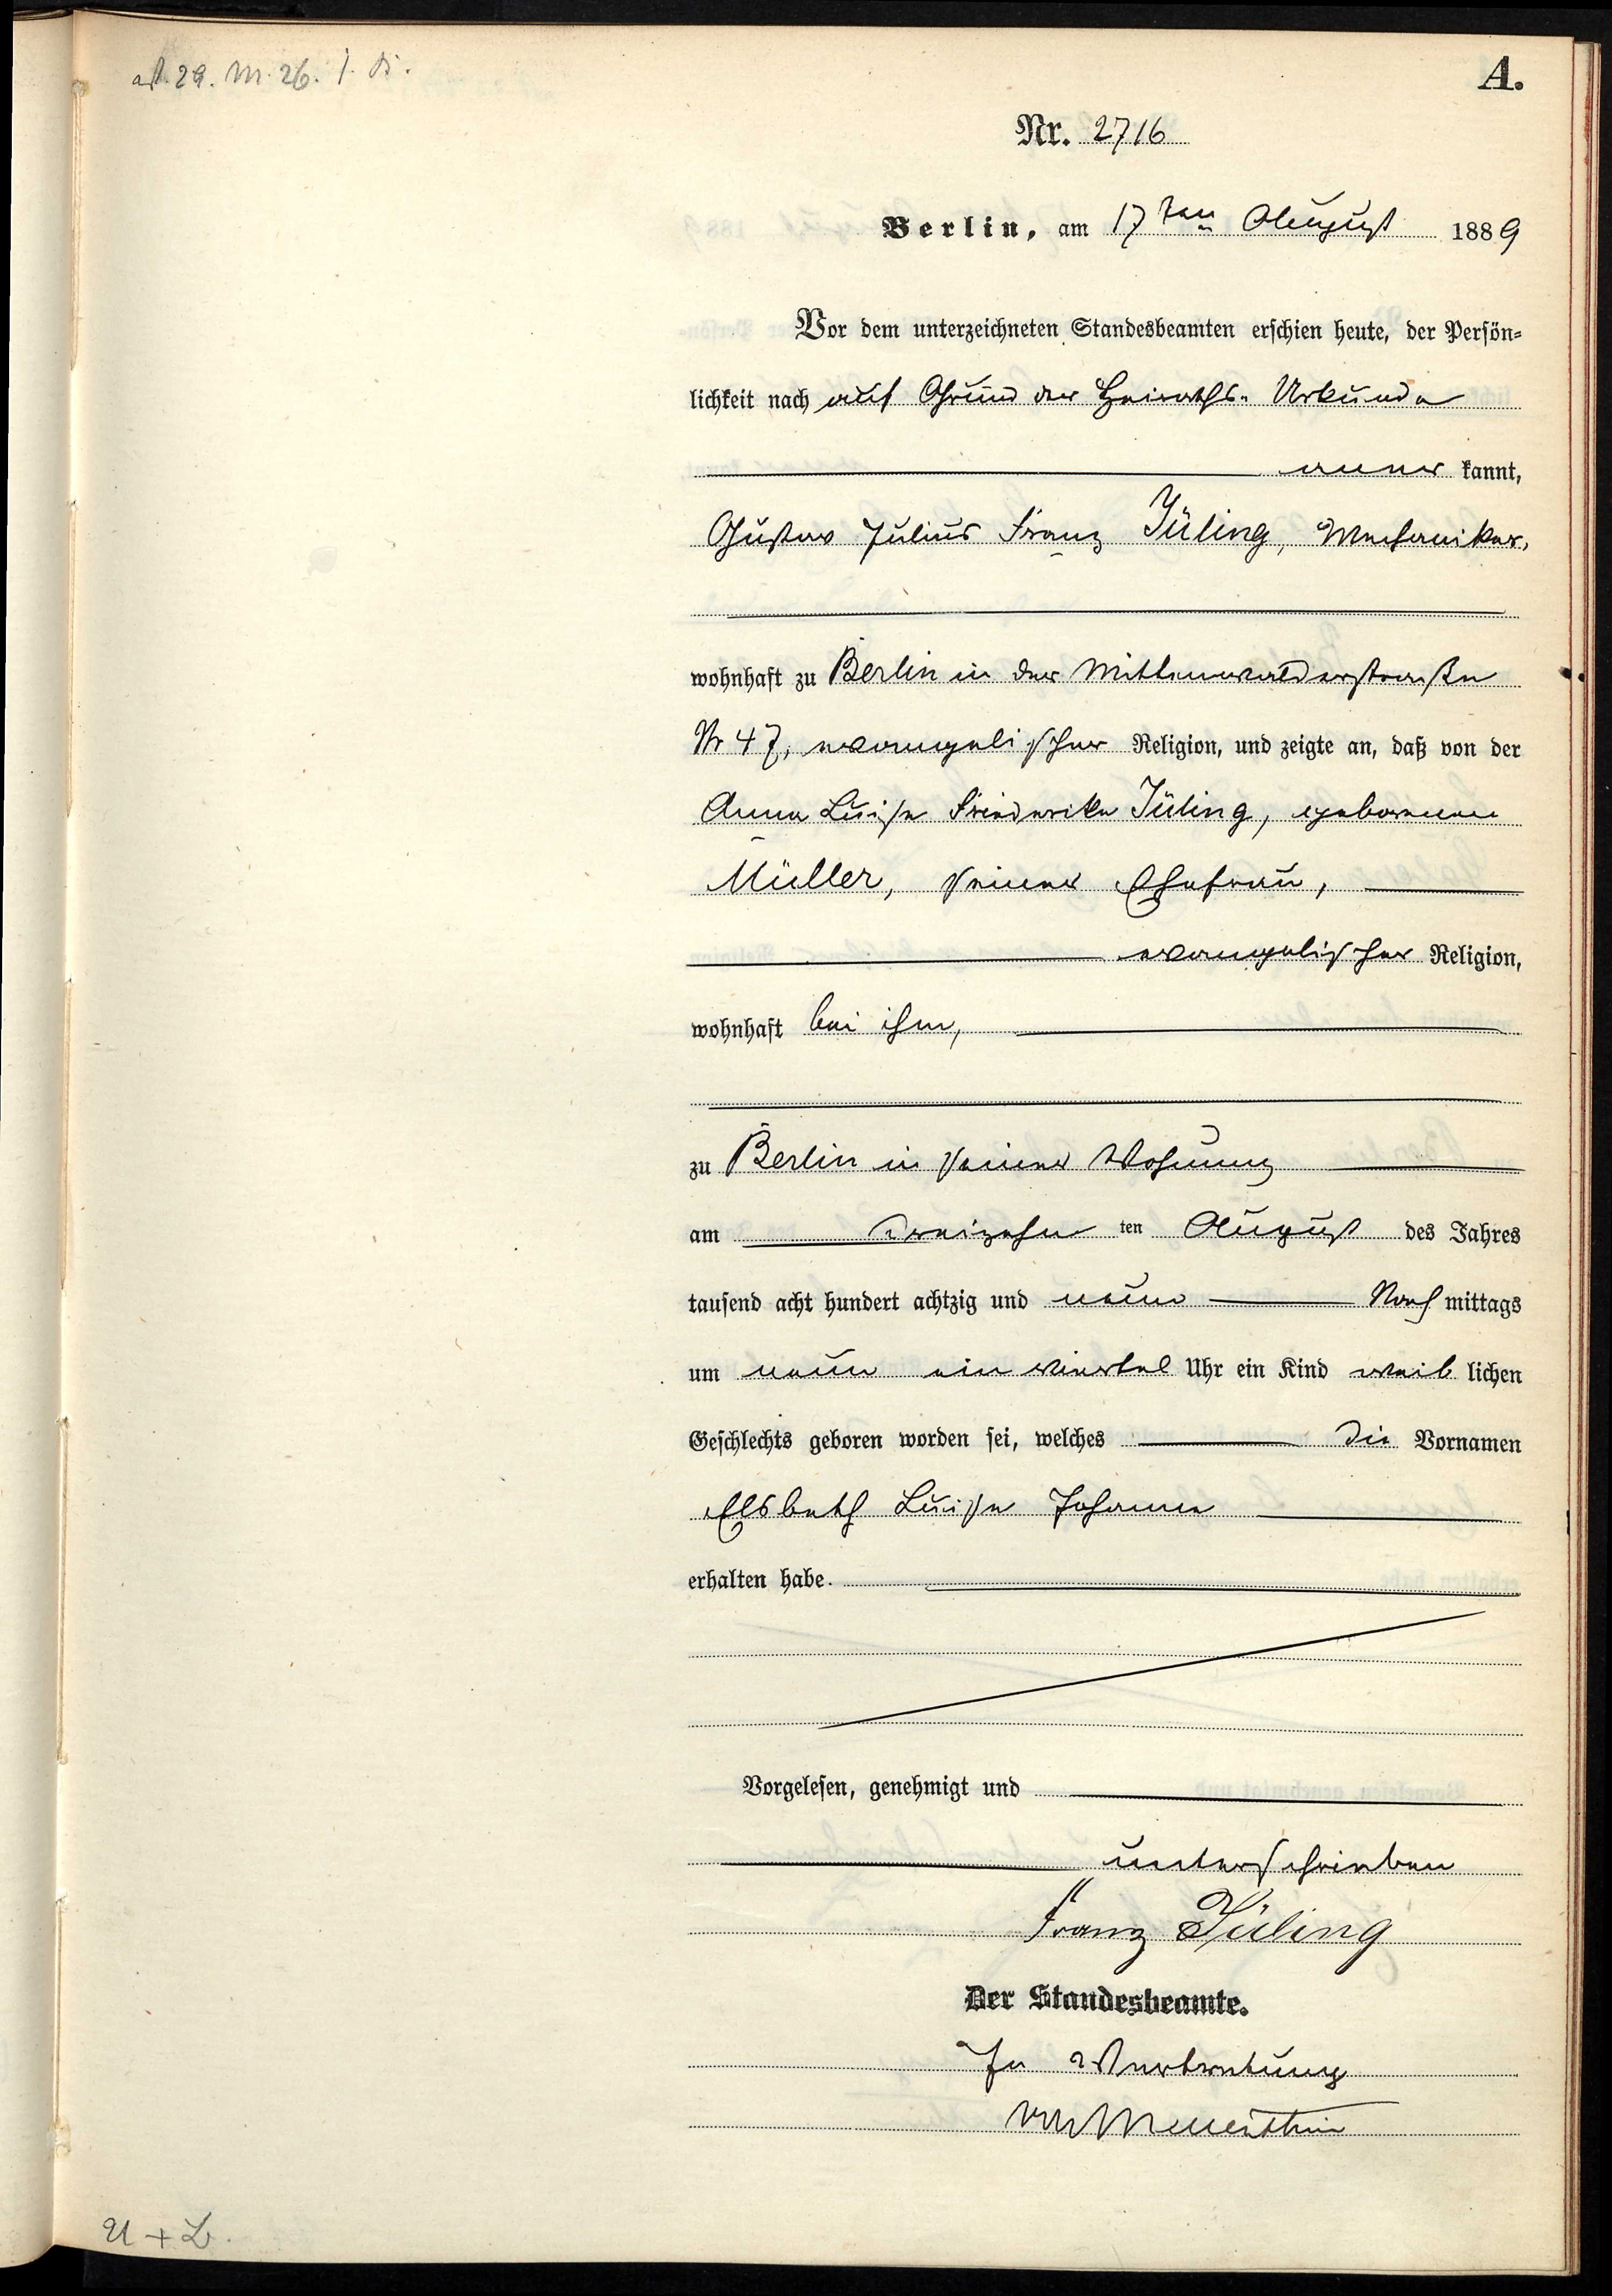 A.
Nr. 2716
Berlin, am 17ten August 1889
Vor dem unterzeichneten Standesbeamten erschien heute, der Persön-
lichkeit nach auf Grund der Heiraths-Urkunde
aner kannt,
Gustav Julius Franz Jüling, Mechaniker,
wohnhaft zu Berlin in der Mittenwalderstraße
Nr 47, evangelischer Religion, und zeigte an, daß von der
Anna Luise Friederike Jüling, geborenen
Müller, seiner Ehefrau,
evangelischer Religion,
wohnhaft bei ihm,
zu Berlin in seiner Wohnung
am dreizehn ten August des Jahres
tausend acht hundert achtzig und neun Nach mittags
um neun ein viertel Uhr ein Kind weib lichen
Geschlechts geboren worden sei, welches die Vornamen
Elsbeth Luise Johanna
erhalten habe.
Vorgelesen, genehmigt und
unterschrieben
Franz Jüling
Der Standesbeamte.
In Vertretung
von